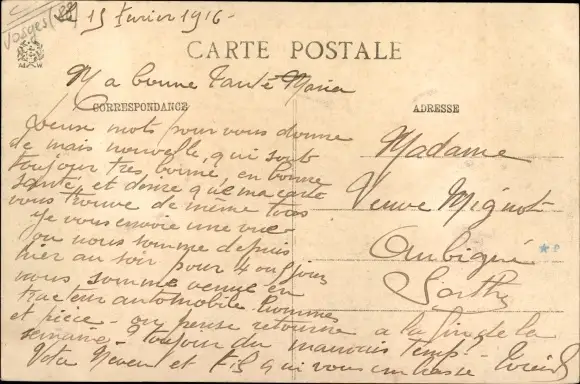 Vosges (88)
15 fevrier 1916-
CARTE POSTALE
Ma bonne Tante Maria
CORRESPONDANCE
ADRESSE
Deux mots pour vous donne
de mais nouvelle, qui sont
toujour tres bonne, en bonne
santé, et donse que ma carte
vous trouve de même tous
Je vous envoie une vue
ou nous somme depuis
hier au soir pour 4 ou 5 jour
nous somme venue en
tracteur automobile hommes
et pièce - on pense retourne a la fin de la
semaine - Toujour du mauvais temp-
Vota Neveu et Fils qui vous embrasse
Madame
Veuve Mignot
Aubigné
Sarthe